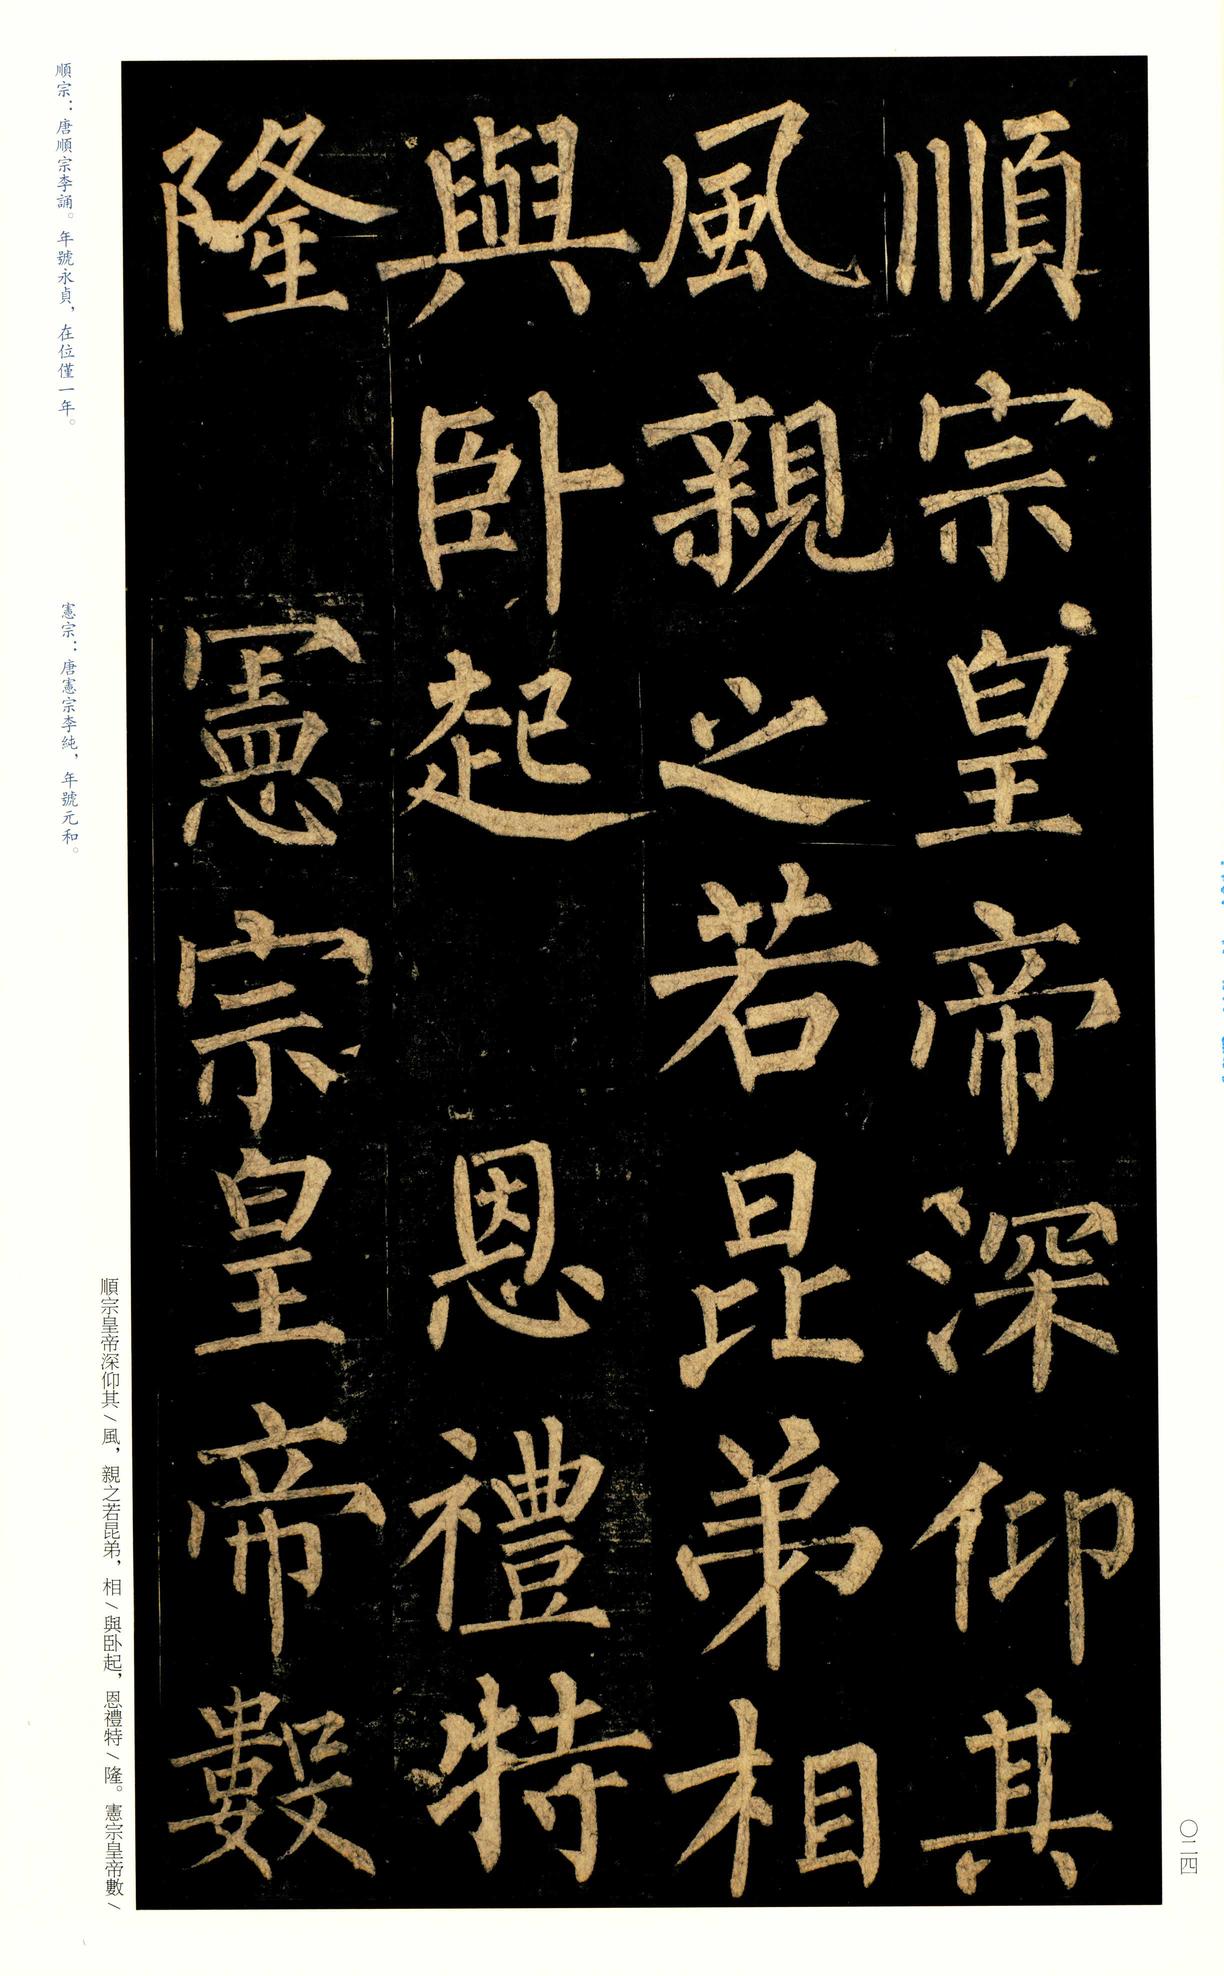 順宗皇帝深仰其
風親之若昆弟相
與卧起 恩禮特
隆 憲宗皇帝數
〇二四
順宗皇帝深仰其/風，親之若昆弟，相/與卧起，恩禮特/隆。憲宗皇帝數/
順宗：唐順宗李誦。年號永貞，在位僅一年。
憲宗：唐憲宗李純，年號元和。